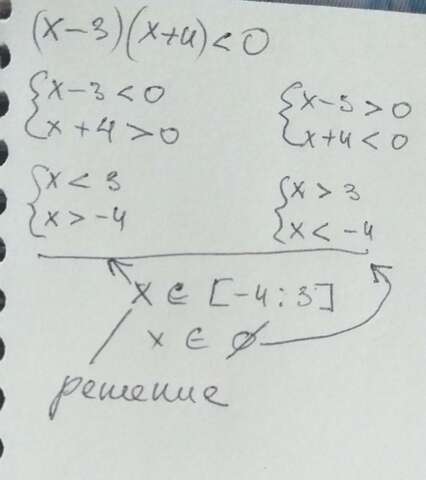 (x-3)(x+4)<0
{x-3<0
x+4>0
{x-3>0
x+4<0
{x<3
x>-4
{x>3
x<-4
x ∈ [-4:3]
x ∈ ∅
решение